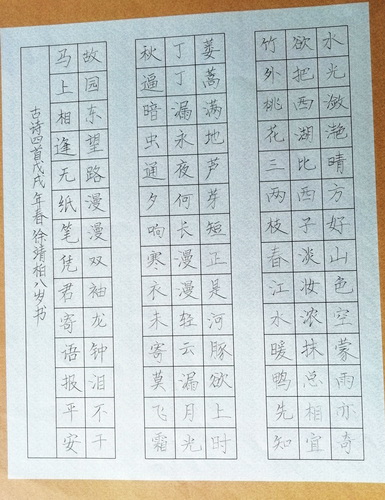 水光潋滟晴方好山色空蒙雨亦奇
欲把西湖比西子淡妆浓抹总相宜
竹外桃花三两枝春江水暖鸭先知
蒌蒿满地芦芽短正是河豚欲上时
丁丁漏永夜何长漫漫轻云漏月光
秋逼暗虫通夕响寒衣未寄莫飞霜
故园东望路漫漫双袖龙钟泪不干
马上相逢无纸笔凭君寄语报平安
古诗四首戊戌年春徐靖柏八岁书